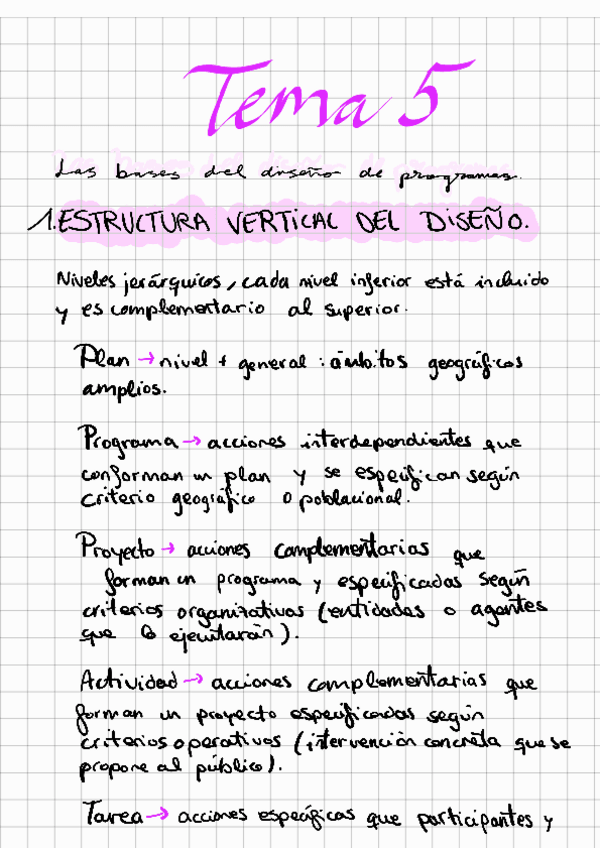 Tema 5
Las bases del diseño de programas.
1.ESTRUCTURA VERTICAL DEL DISEÑO.
Niveles jerárquicos, cada nivel inferior está incluido
y es complementario al superior.
Plan → nivel + general : ámbitos geográficos
amplios.
Programa → acciones interdependientes que
conforman un plan y se especifican según
criterio geográfico o poblacional.
Proyecto → acciones complementarias que
forman un programa y especificadas según
criterios organizativos (entidades o agentes
que lo ejecutarán).
Actividad → acciones complementarias que
forman un proyecto especificadas según
criterios operativos (intervención concreta que se
propone al público).
Tarea → acciones específicas que participantes y